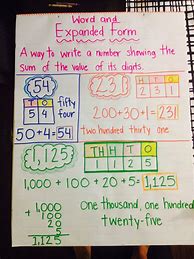 Word and
Expanded Form
A way to write a number showing the
sum of the value of its digits.
54
T O
5 4
fifty
four
50+4=54
231
H T O
2 3 1
200+30+1=231
two hundred thirty one
1,125
TH H T O
1 1 2 5
1,000 + 100 + 20 + 5 = 1,125
1,000
100
20
+ 5
1,125
One thousand, one hundred
twenty-five